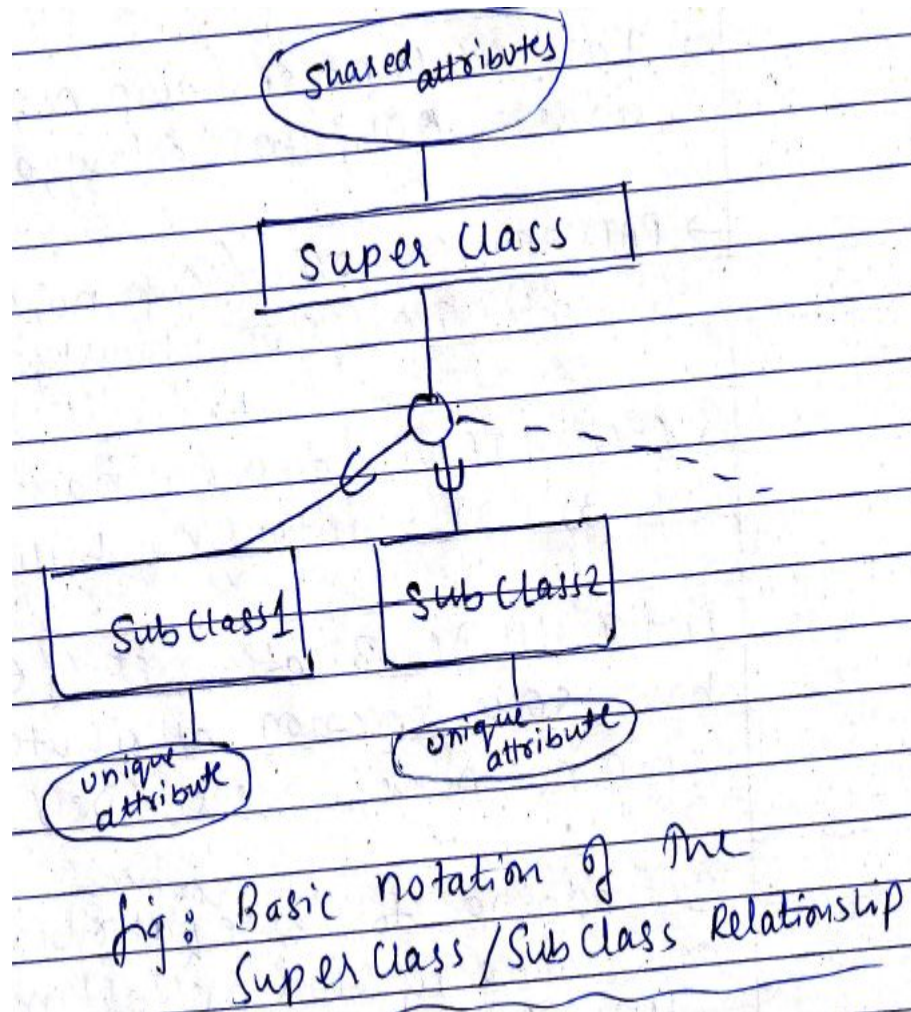 Shared attributes
Super Class
Sub Class1
Sub Class2
unique
attribute
unique
attribute
fig: Basic notation of the
Super Class / Sub Class Relationship